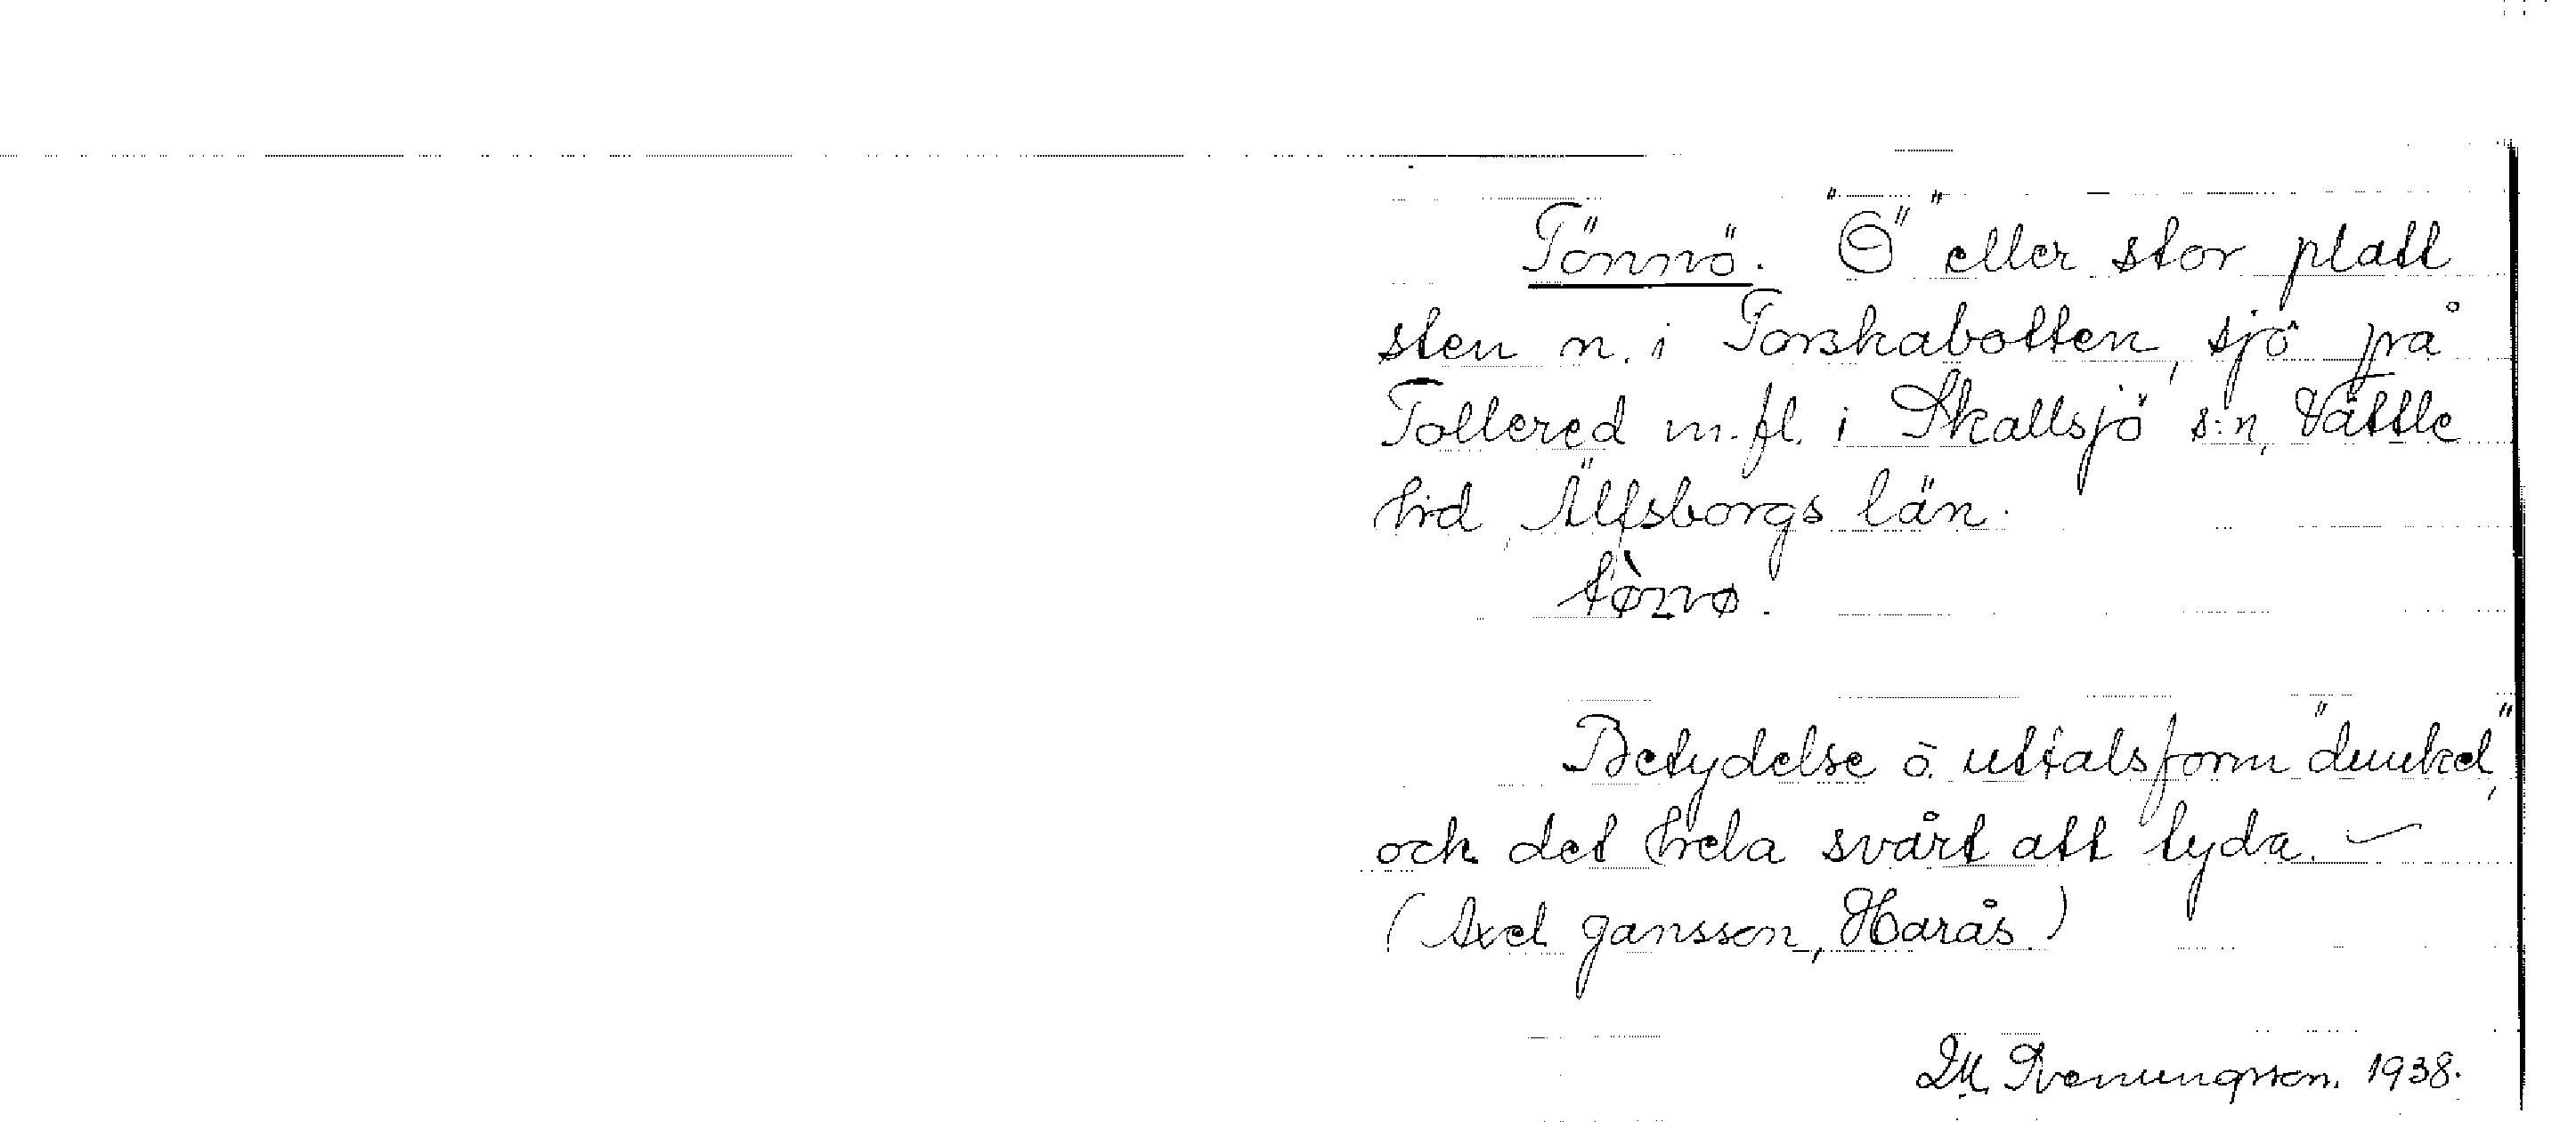 Tönnö. "Ö" eller stor platt
sten n. i Torskabotten, sjö på
Tollered m. fl. i Skallsjö s:n, Vättle
hd, Älfsborgs län.
Betydelse o. uttalsform "dunkel",
och det hela svårt att tyda. –
(Axel Jansson, Harås.)
D.M. Svenungsson. 1938.